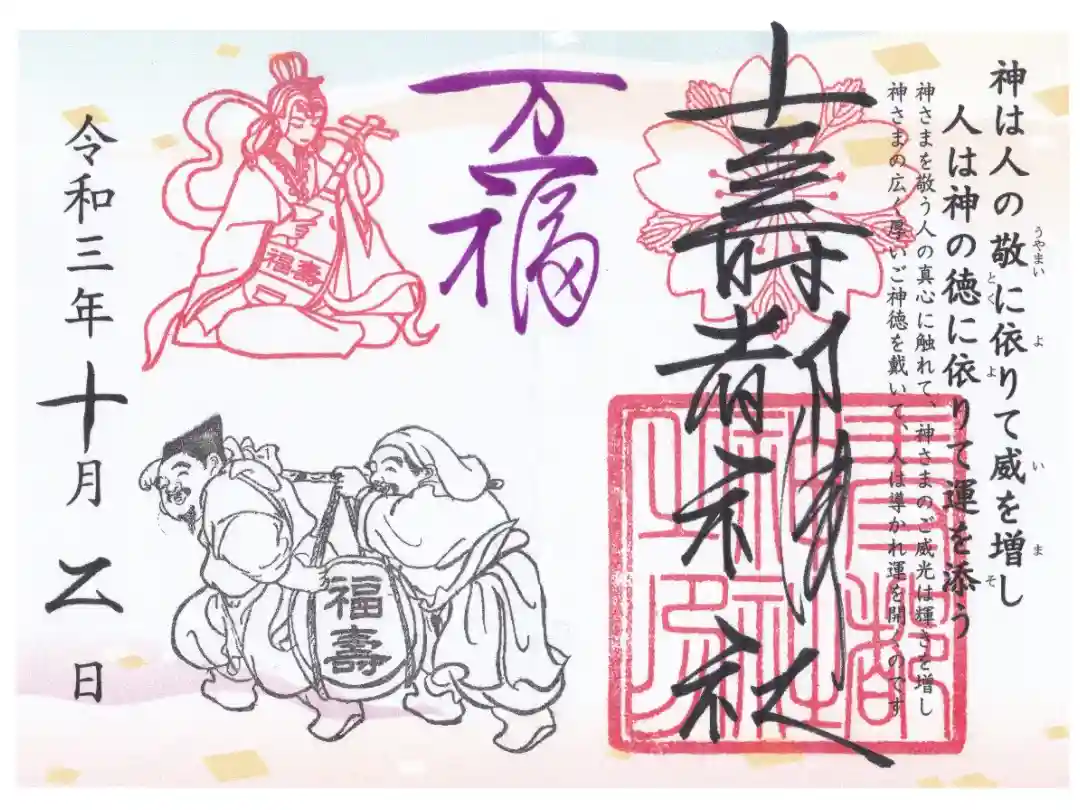 神は人の敬に依りて威を増し
うやまい よ い ま
人は神の徳に依りて運を添う
とく よ そ
神さまを敬う人の真心に触れて、神さまのご威光は輝きを増し
神さまの広く厚いご神徳を戴いて、人は導かれ運を開くのです
壽都神社
壽都神社之印
万福
福壽
福壽
令和三年十月乙日